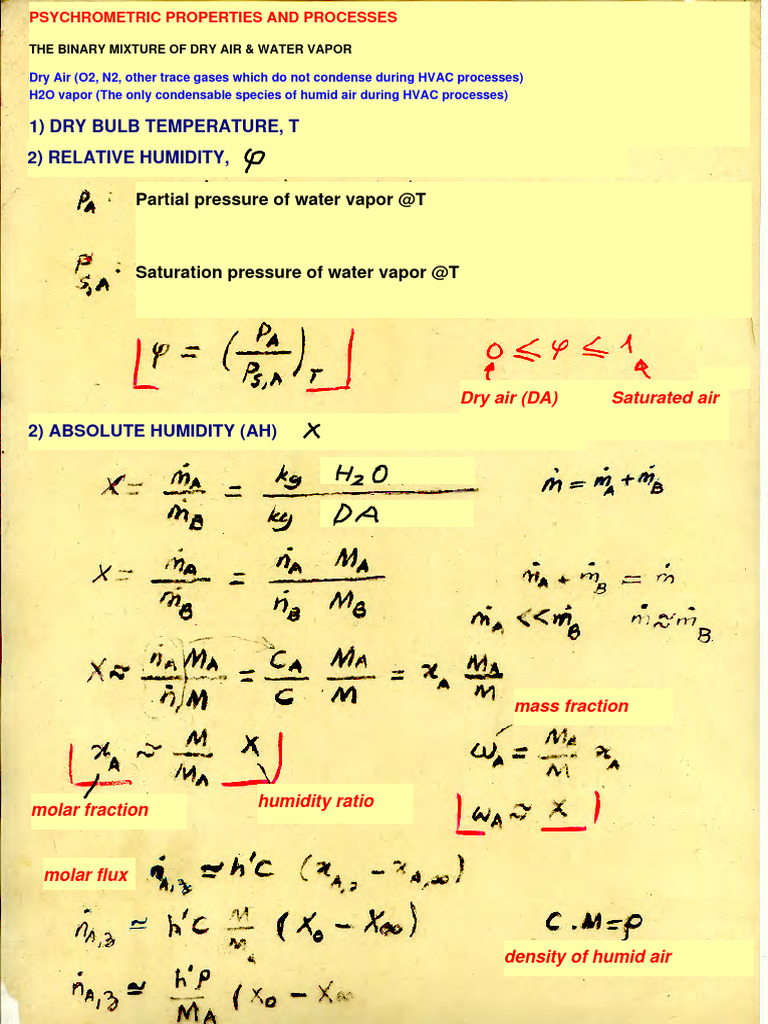 PSYCHROMETRIC PROPERTIES AND PROCESSES
THE BINARY MIXTURE OF DRY AIR & WATER VAPOR
Dry Air (O2, N2, other trace gases which do not condense during HVAC processes)
H2O vapor (The only condensable species of humid air during HVAC processes)
1) DRY BULB TEMPERATURE, T
2) RELATIVE HUMIDITY, φ
P_A : Partial pressure of water vapor @T
P_S,A : Saturation pressure of water vapor @T
φ = (P_A / P_S,A)_T 0 ≤ φ ≤ 1
Dry air (DA) Saturated air
2) ABSOLUTE HUMIDITY (AH) X
X = ṁ_A / ṁ_B = kg H2O / kg DA ṁ = ṁ_A + ṁ_B
X = ṁ_A / ṁ_B = ṅ_A M_A / ṅ_B M_B ṁ_A + ṁ_B = ṁ
ṁ_A << ṁ_B ṁ ≈ ṁ_B
X ≈ ṅ_A M_A / ṅ M = C_A / C M_A / M = x_A M_A / M
mass fraction
x_A ≈ M / M_A X ω_A = M_A / M x_A
molar fraction humidity ratio ω_A ≈ X
molar flux ṅ_A,z ≃ h'C (x_A,o - x_A,∞)
ṅ_A,z ≃ h'C M / M_A (X_o - X_∞) C.M = ρ
density of humid air
ṅ_A,z ≃ h'ρ / M_A (X_o - X_∞